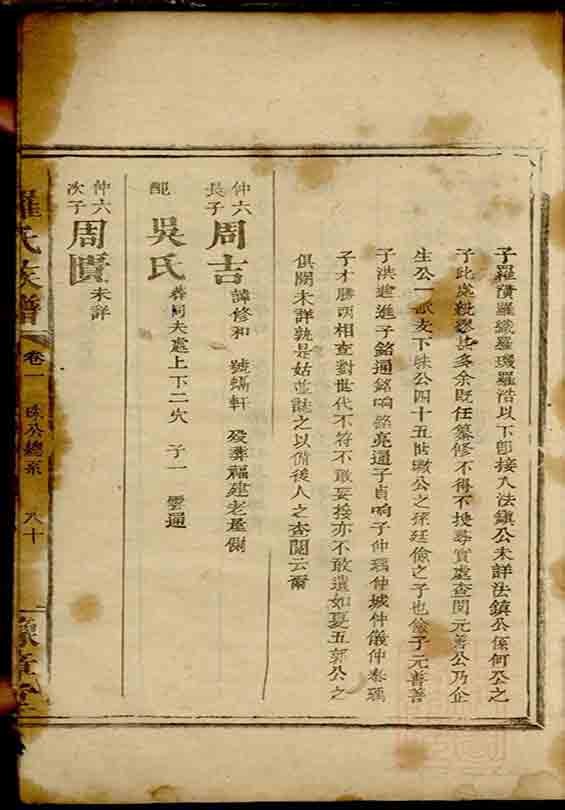 子羅瓚羅鐵羅璣羅浩以下卽接入法鎮公未詳法鎮公係何公之
子此處紕繆甚多余旣任纂修不得不搜尋實處查閱元善公乃企
生公一派支下珠公四十五世 公之孫廷儉之子也儉子元善善
子洪進進子銘通銘响銘亮通子貞响子仲瑀仲城仲儀仲泰瑀
子才勝朗相查對世代不符不敢妄接亦不敢遺如夏五郭公之
俱闕未詳孰是姑並誌之以俻後人之查閱云爾
仲六長子 周吉 諱修和 號蟎軒 歿葬福建老屋側
配 吳氏 葬同夫處上下二穴 子一 雲通
仲六次子 周 未詳
羅氏族譜 卷一 珠公總系 八十 豫章堂